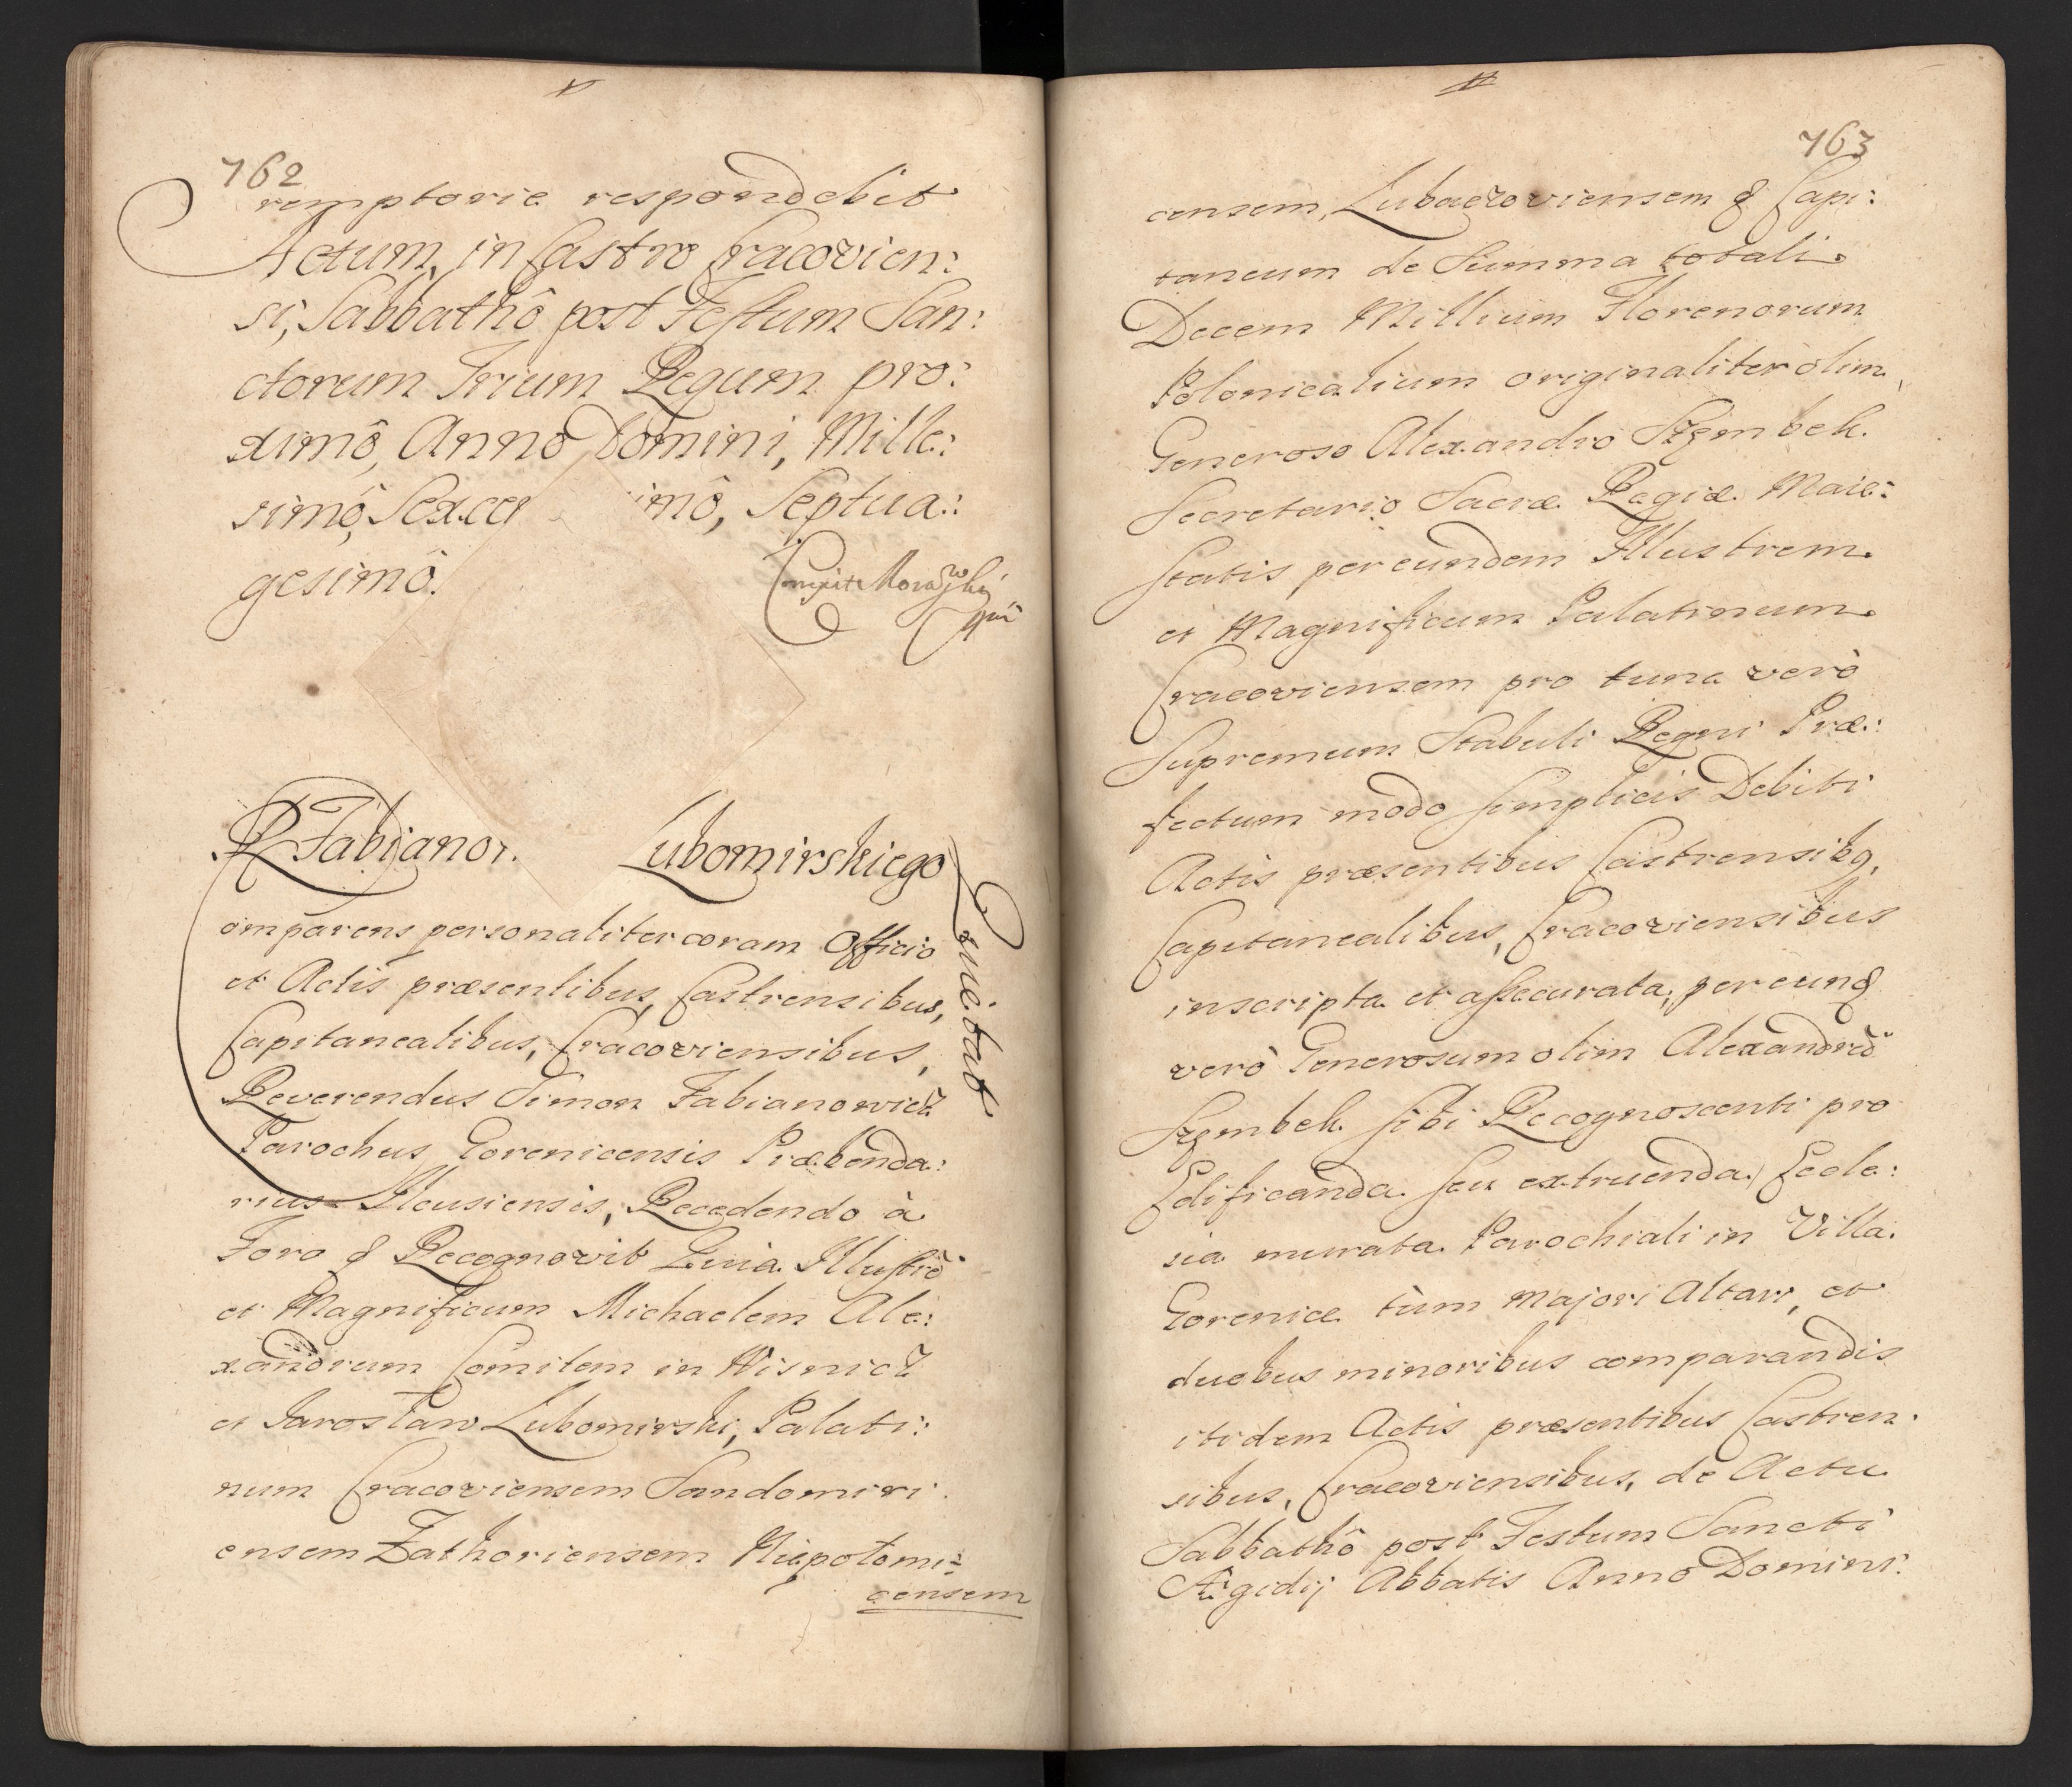 762
remptorie respondebit
Actum, in Castro Cracovien:
si, Sabbathô post Festum San:
ctorum Trium Regum pro:
ximô, Annô Domini, Mille:
simô, Sexcen imô, Septua:
gesimô.
R Fabijanow. Lubomirskiego
Quietat
omparens personaliter coram Officio
et Actis præsentibus, Castrensibus,
Capitanealibus, Cracoviensibus,
Reverendus Simon Fabianowicz
Parochus Gorenicensis Præbenda:
rius Ilcusiensis, Recedendo à
Foro & Recognovit Quia Illustrē
et Magnificum Michaelem Ale:
xandrum Comitem in Wisnicz
et Jarosław Lubomirski, Palati:
num Cracoviensem Sandomiri:
ensem Zathoriensem Niepołomi:
censem
763
censem, Lubaczoviensem & Capi:
taneum de Summa totali
Decem Millium Florenorum
Polonicalium originaliter olim
Generoso Alexandro Szembek
Secretario Sacræ Regiæ Maie:
statis per eundem Illustrem
et Magnificum Palatinum
Cracoviensem pro tunc verò
Supremum Stabuli Regni Præ:
fectum modo simplicis Debiti
Actis præsentibus Castrensibq,
Capitanealibus, Cracoviensibus
inscripta et assecurata, per eund
verò Generosum olim Alexandrū
Szembek sibi Recognoscenti pro
Edificanda seu extruenda Eccle:
sia murata Parochiali in Villa
Gorenice tùm Majori Altari, et
duobus minoribus comparandis
itidem Actis præsentibus Castren:
sibus, Cracoviensibus, de Actu
Sabbathô post Festum Sancti
Ægidij Abbatis Annô Domini